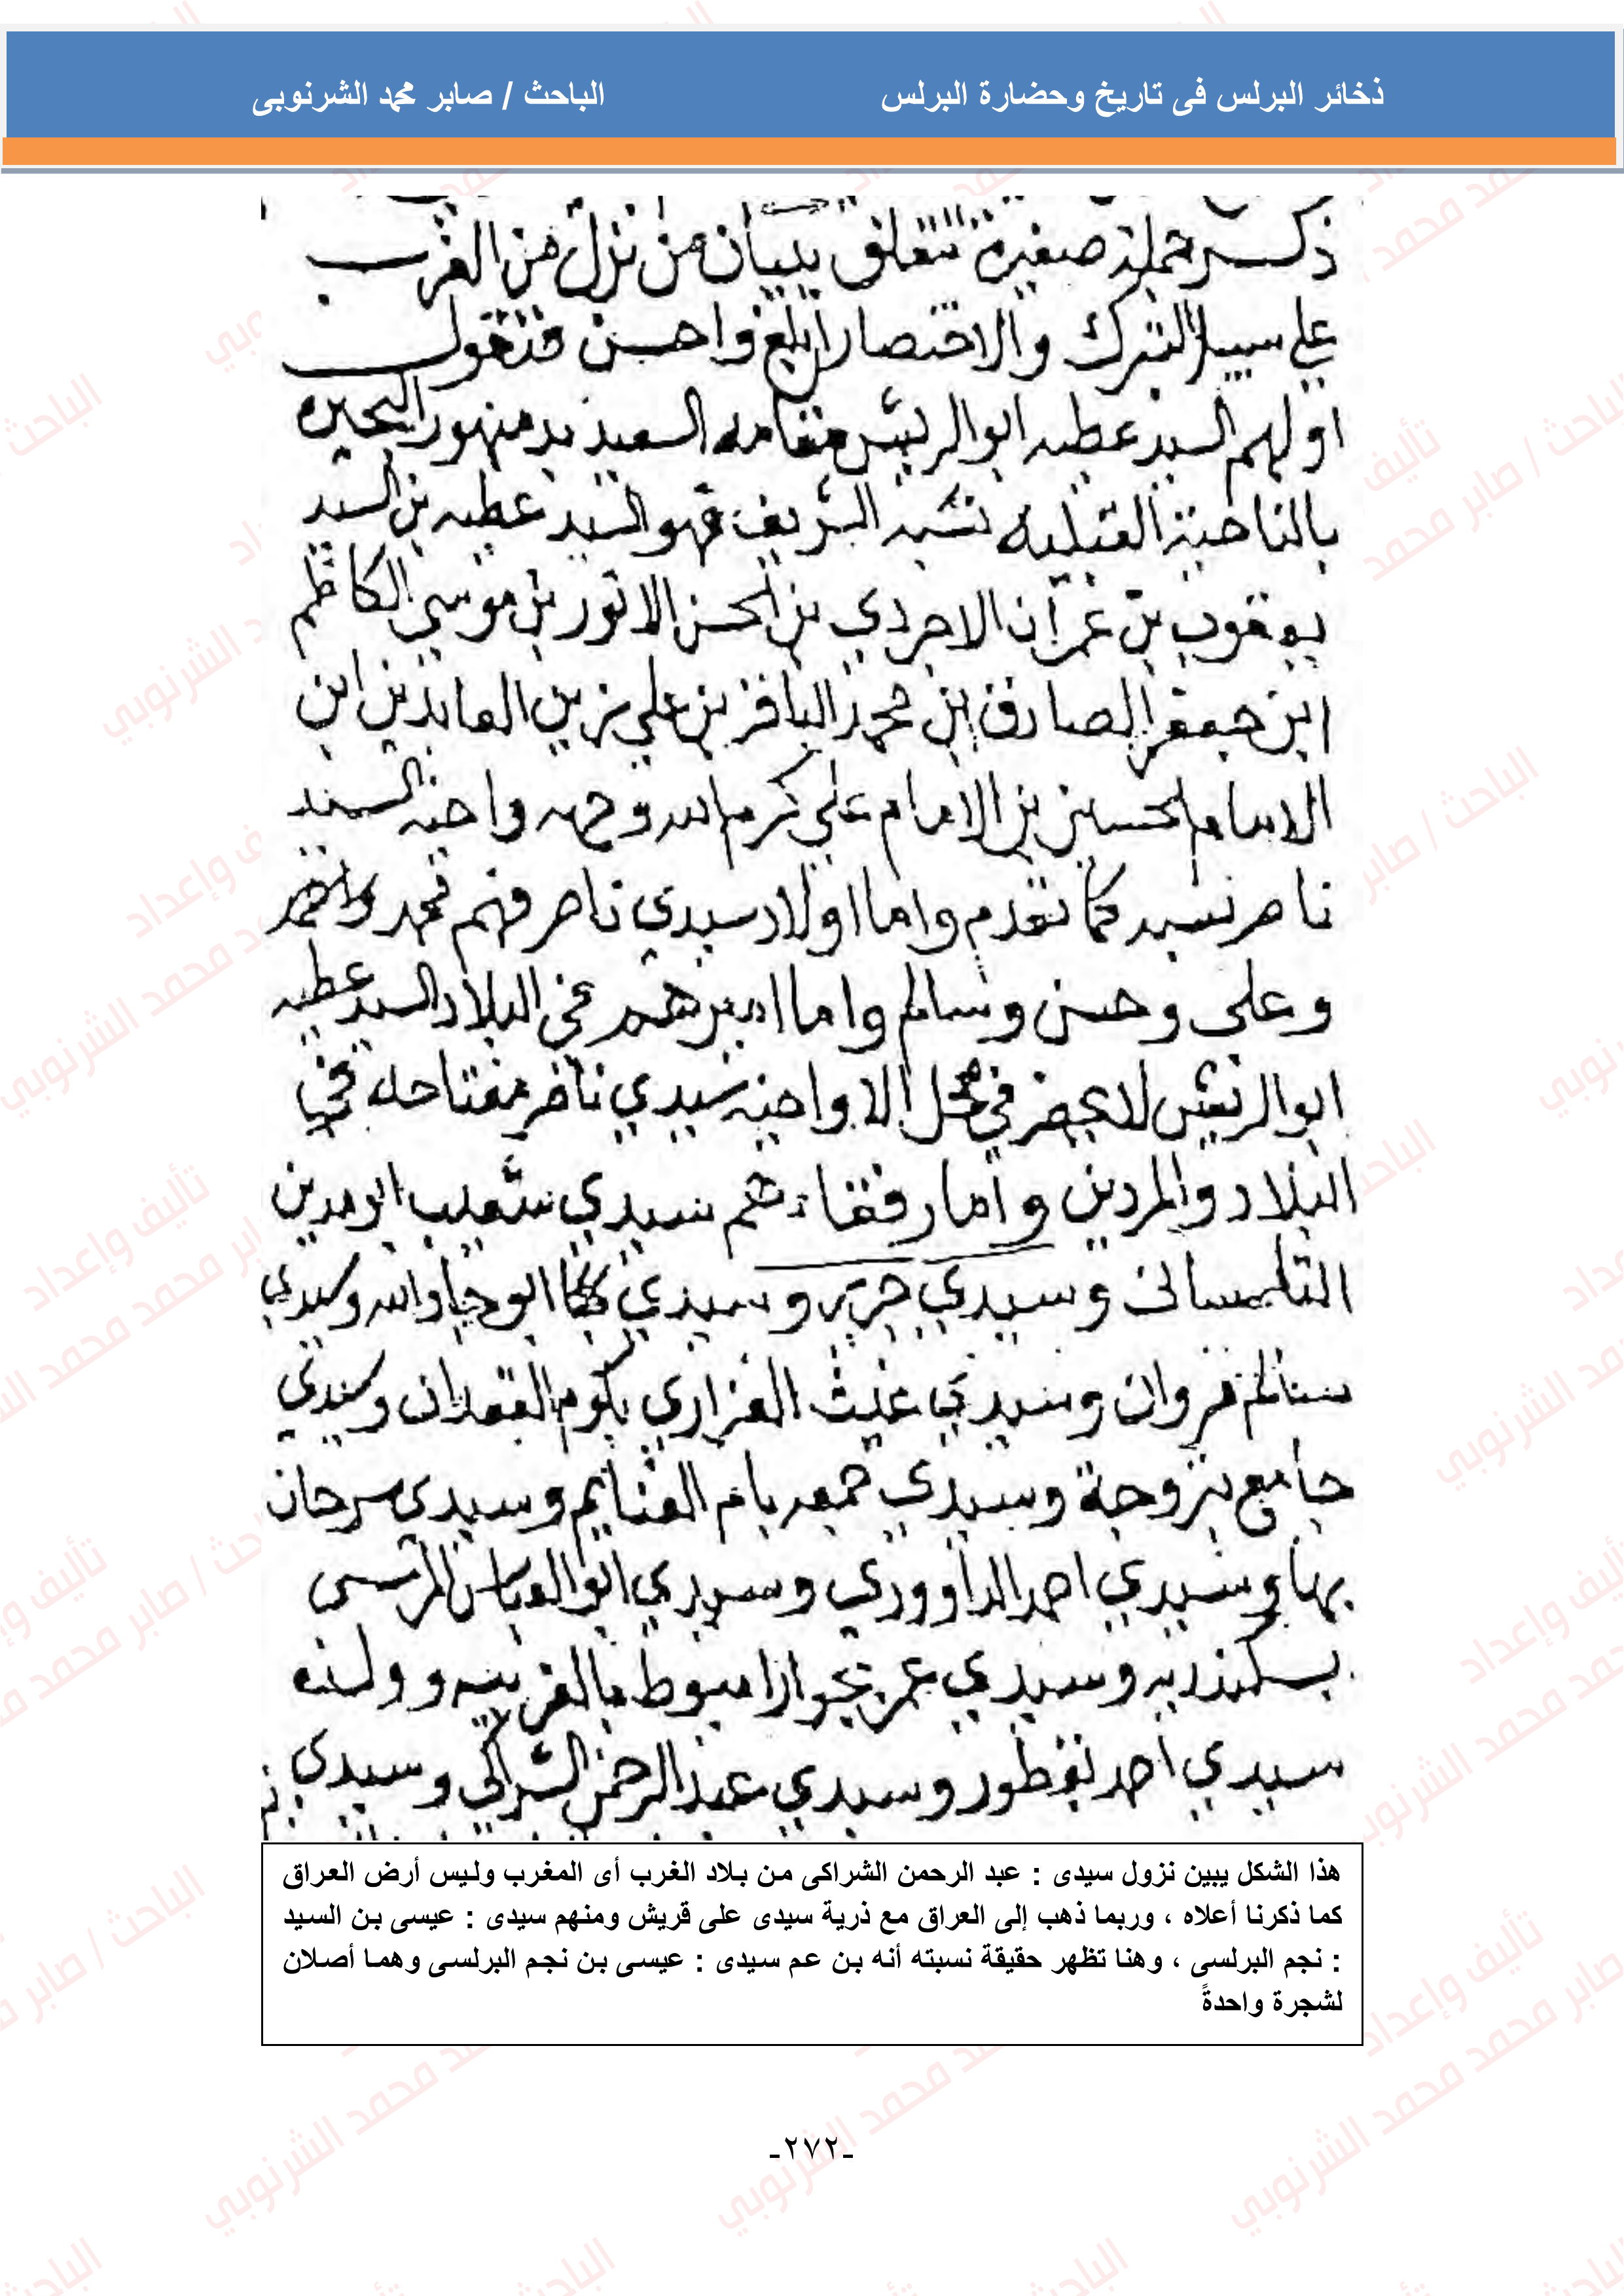 ذخائر البرلس فى تاريخ وحضارة البرلس
الباحث / صابر محمد الشرنوبى
ذكر جملة صغيرة تتعلق ببيان من نزل من الغرب
على سبيل التبرك والاختصار ابلغ واحسن فنقول
اولهم السيد عطيه ابو الريش مقامه السعيد بدمنهور البحيره
بالناحية القبليه نسبه الشريف فهو السيد عطيه بن السيد
يعقوب بن عمران بن الحسن الانور بن موسي الكاظم
ابن جعفر الصادق ابن محمد الباقر بن علي زين العابدين ابن
الامام الحسين بن الامام علي كرم الله وجهه واخيه السيد
ناصر نسبه كما تقدم واما اولاد سيدي ناصر فهم محمد
وعلى وحسن وسالم واما اميرهم في البلاد السيد عطيه
ابو الريش في محل الا واخيه سيدي ناصر مفتاحه في
البلاد والمردين واما رفقاءهم سيدي شعيب ابو مدين
التلمسانى وسيدي جرير وسيدي ابو جاد الله وسيدي
سالم مروان وسيدي غيث الفزاري بكوم وسيدي
جامع بتروجة وسيدي جمعه بام الغنايم وسيدي سرحان
بها وسيدي احمد الداوودي وسيدي ابو العباس المرسى
بسكندريه وسيدي عمر بجوار اسيوط بالغربيه وولده
سيدي احمد نفطور وسيدي عبد الرحمن الشراكي وسيدي
هذا الشكل يبين نزول سيدى : عبد الرحمن الشراكى من بلاد الغرب أى المغرب وليس أرض العراق
كما ذكرنا أعلاه ، وربما ذهب إلى العراق مع ذرية سيدى على قريش ومنهم سيدى : عيسى بن السيد
: نجم البرلسى ، وهنا تظهر حقيقة نسبته أنه بن عم سيدى : عيسى بن نجم البرلسى وهما أصلان
لشجرة واحدةً
-٢٧٢-
تأليف وإعداد
الباحث / صابر محمد الشرنوبي